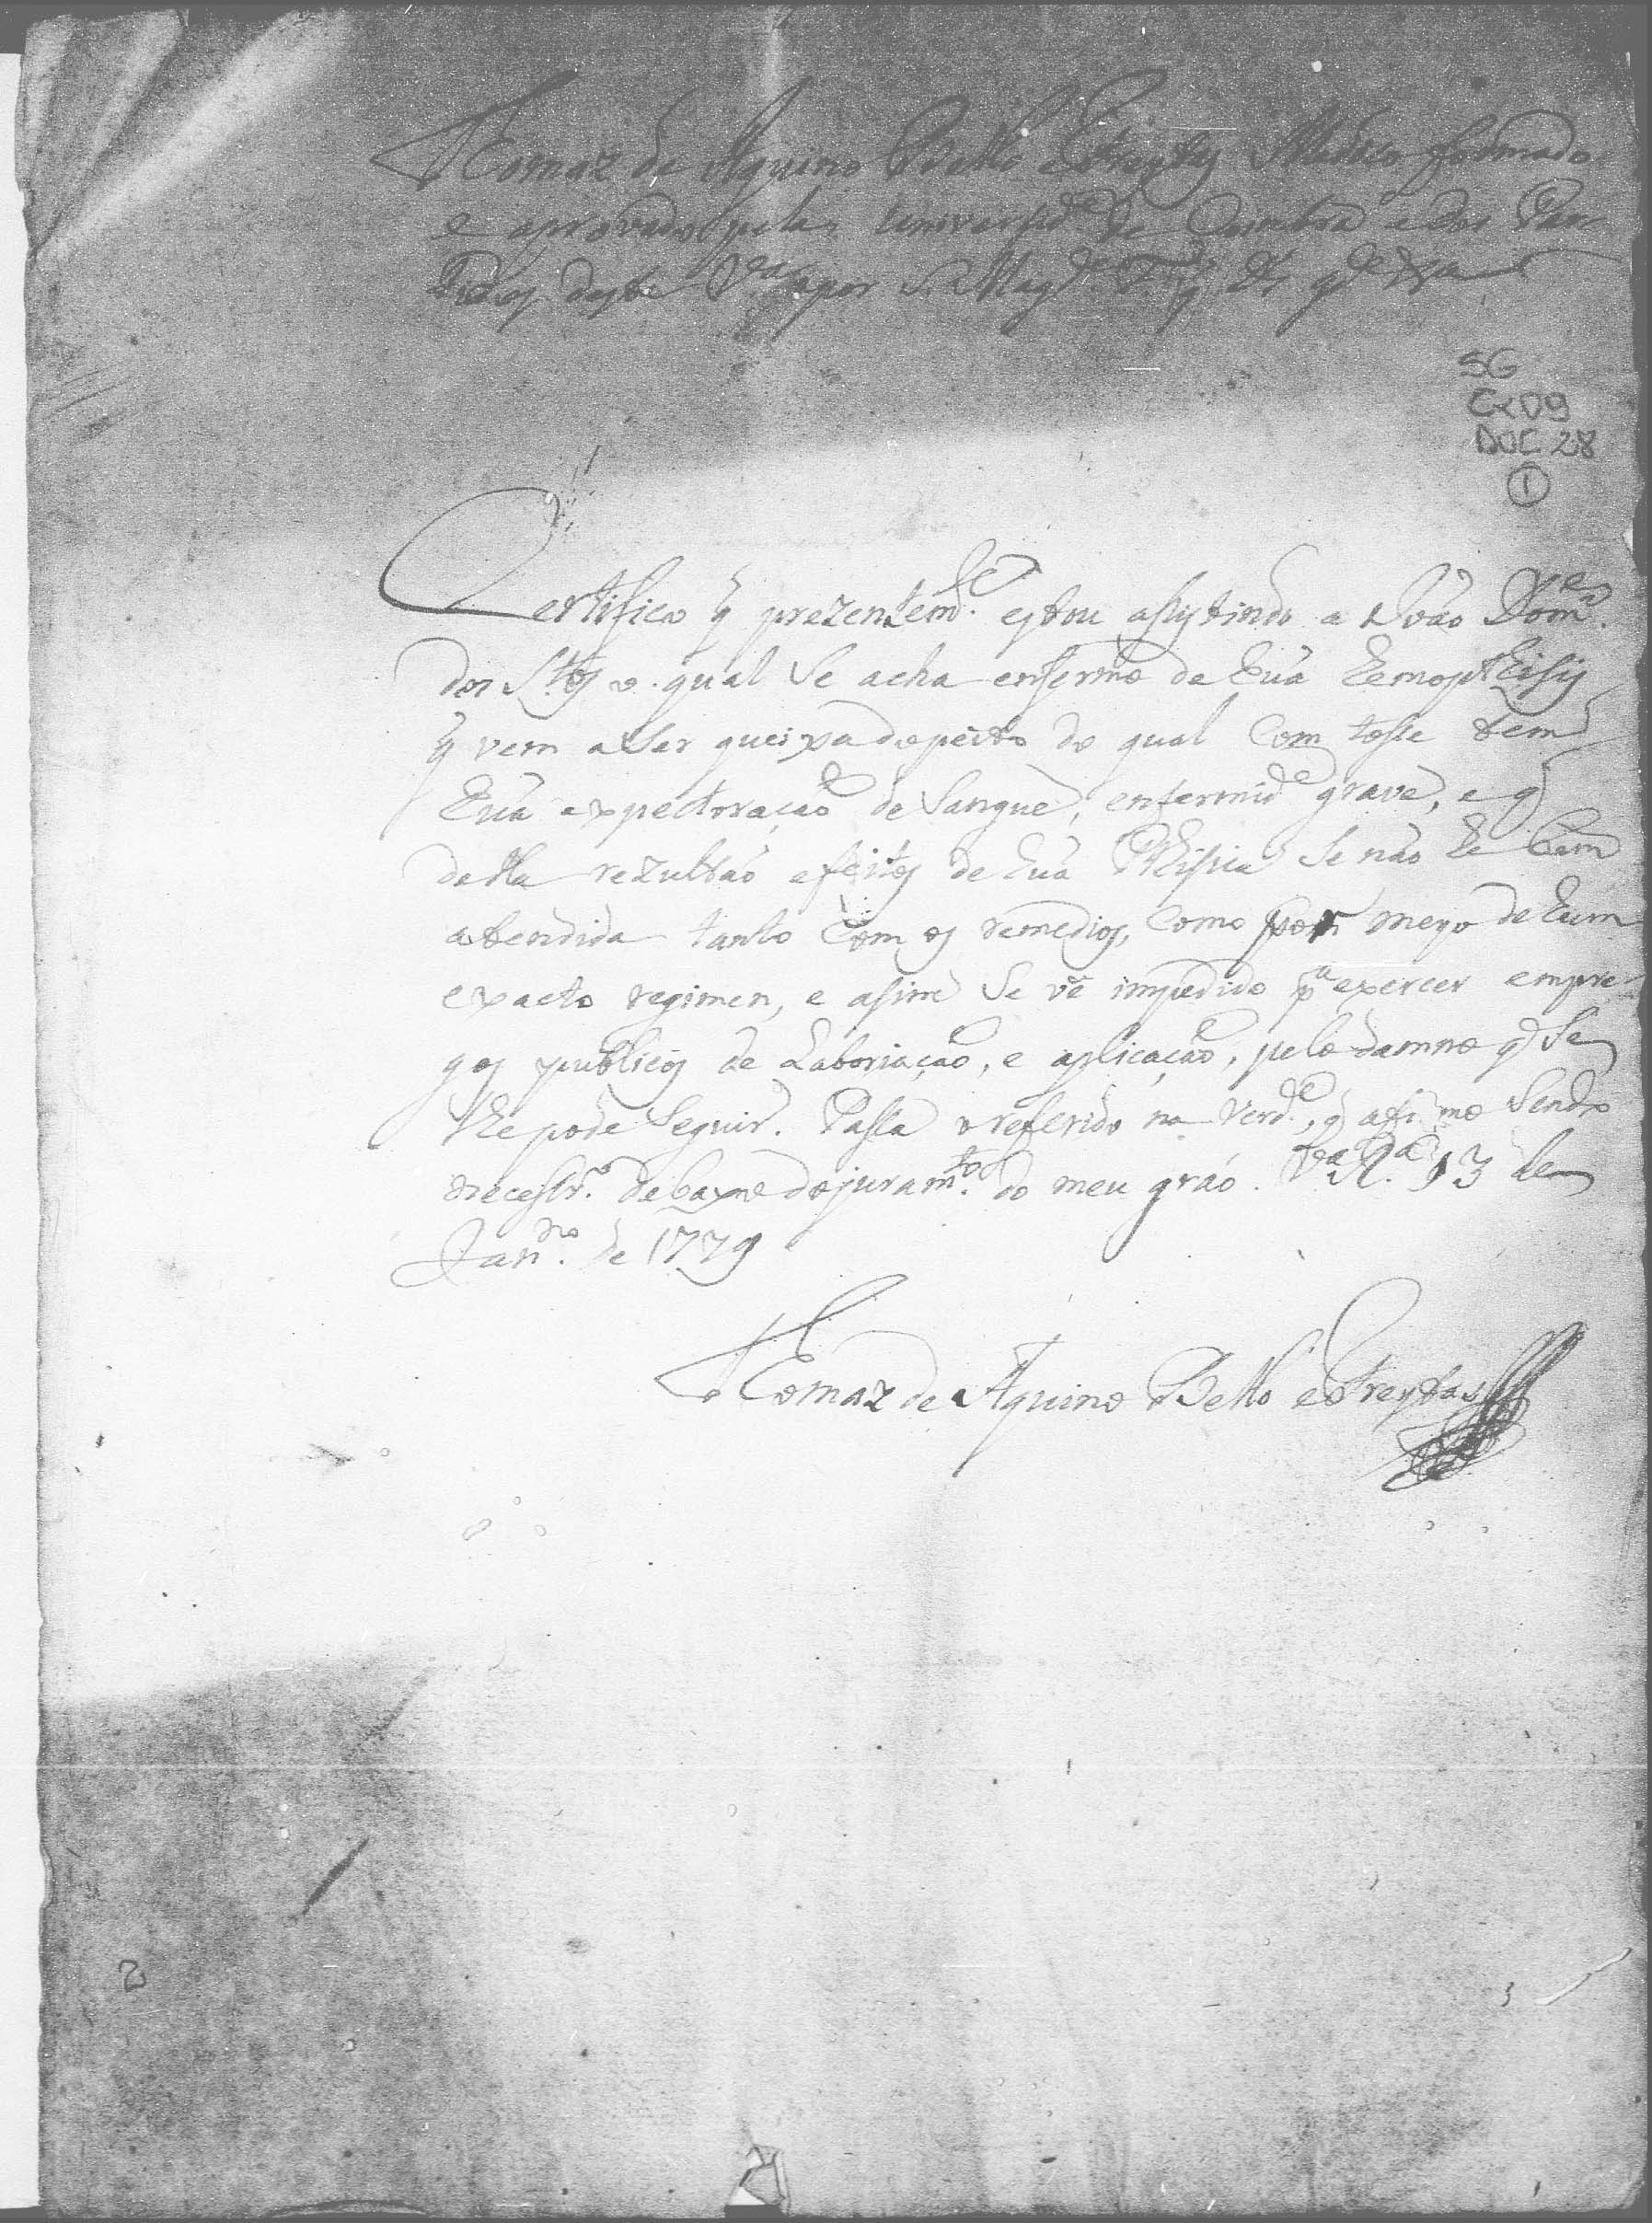 Thomaz de Aquino Bello e Freytas Medico formado
e aprovado pela Universid.e de Coimbra e dos Par-
tidos desta V.a por S. Mag.de F. q D.s g.de
SG
Cx 09
DOC 28
1
Certifico q prezentem.e estou assystindo a João Dom.es
dos S.tos o qual se acha enfermo de hũa hemopthisis
q vem a ser queixa do peito do qual com tosse tem
hũa expectoração de sangue, enfermid.e grave, e q
della rezultão efeitos de hũa Pthisica se não he bem
atendida tanto com os remedios, como por meyo de hum
exacto regimen, e asim se vê impedido p.a exercer empre-
gos publicos de Laboriação, e aplicação, pelo damno q se
lhe pode seguir. Passa o referido na verd.e, q afirmo sendo
necessr.o debaxo do juram.to do meu gráo. V.a R.a 13 de
Jan.ro de 1779
Thomaz de Aquino Bello e Freytas
2